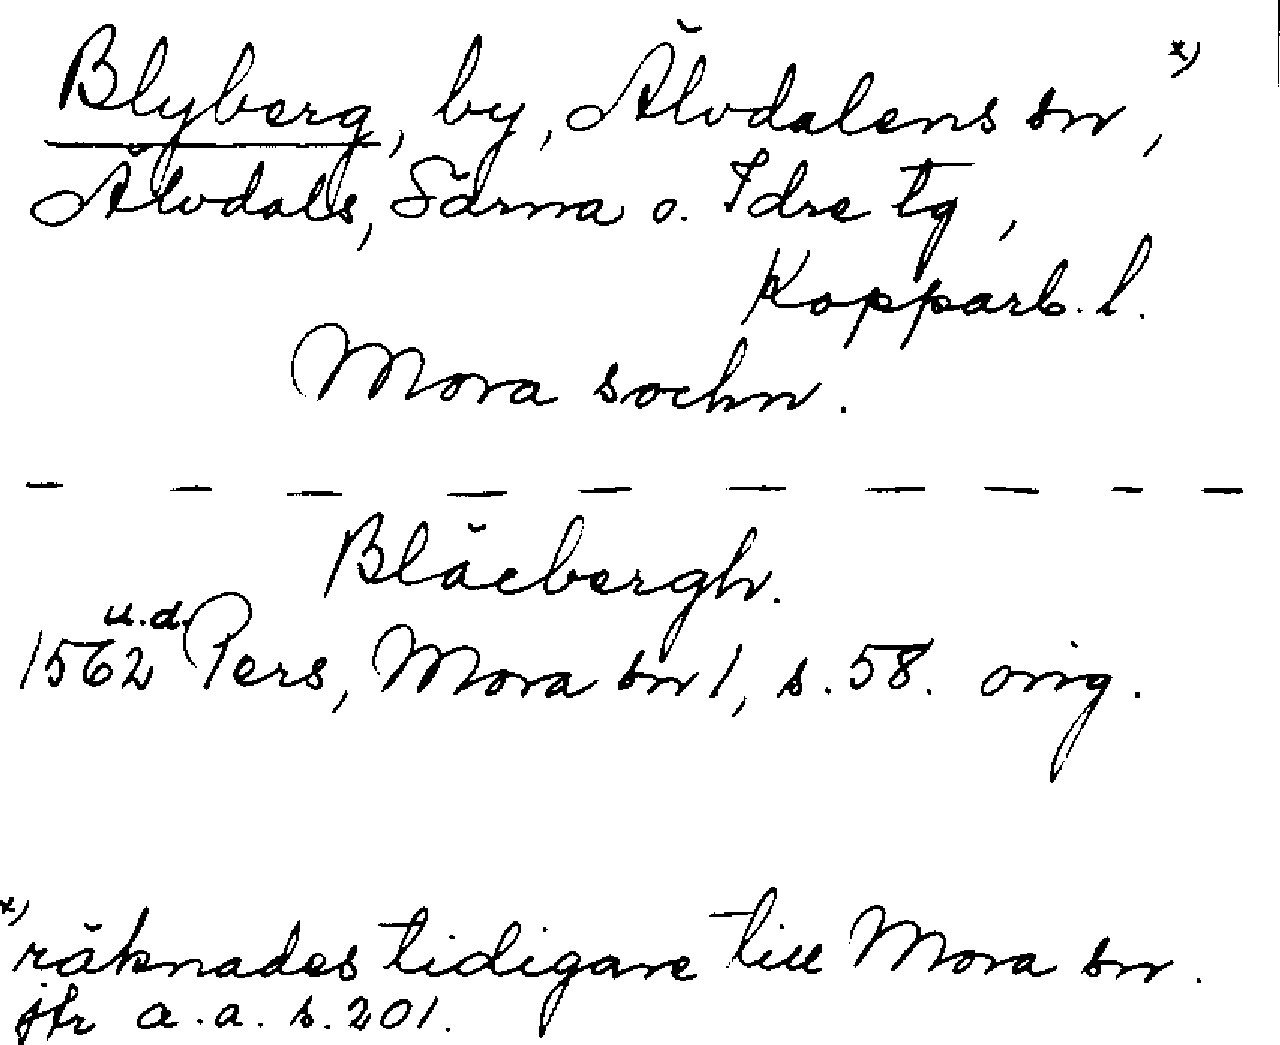 Blyberg, by, Älvdalens sn, x)
Älvdals, Särna o. Idre tg,
Kopparb. l.
Mora sochn.
— — — — — — — — — —
Bläebergh.
1562 u.d. Pers, Mora sn 1, s. 58. orig.
x) räknades tidigare till Mora sn.
jfr a.a. s. 201.